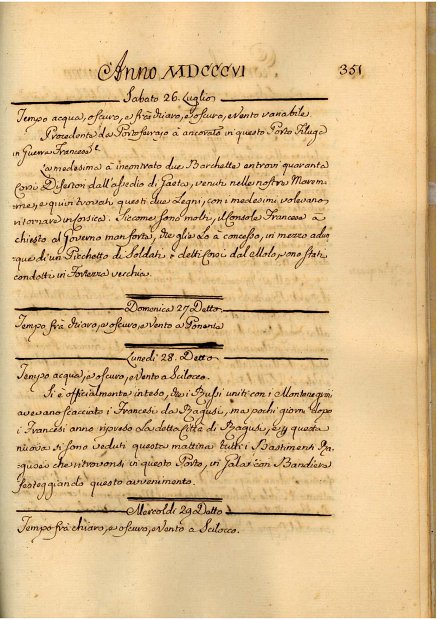 Anno MDCCCVI
351
Sabato 26. Luglio
Tempo acqua, oscuro, e frà chiaro, e oscuro, e vento variabile
Procedente da Portoferajo à ancorato in questo Porto Filuga
in Guerra Francese
La medesima à incontrato due Barchette entrovi quaranta
Corsi Disertori dall'assedio di Gaeta, venuti nelle nostre Marem-
me, e quivi trovati questi due Legni, con i medesimi volevano
ritornare in Corsica. Siccome sono molti, il Console Francese à
chiesto al Governo man forte, che glie La à concessa, in mezzo adun
que di un Picchetto di Soldati i detti Corsi dal Molo, sono stati
condotti in Fortezza vecchia.
Domenica 27 Detto
Tempo frà chiaro, e oscuro, e vento a Ponente
Lunedi 28. Detto
Tempo acqua, e oscuro, e vento a Scilocco.
Si è officialmente inteso, che i Russi uniti con i Montenegrini
avevano scacciato i Francesi da Ragusi, ma pochi giorni dopo
i Francesi anno ripreso La detta Città di Ragusi, e per questa
nuova si sono veduti questa mattina tutti i Bastimenti Ra-
gusei che ritrovansi in questo Porto, in Gala con Bandiera
festeggiando questo avvenimento.
Mercoldi 29 Detto
Tempo frà chiaro, e oscuro, e vento a Scilocco.